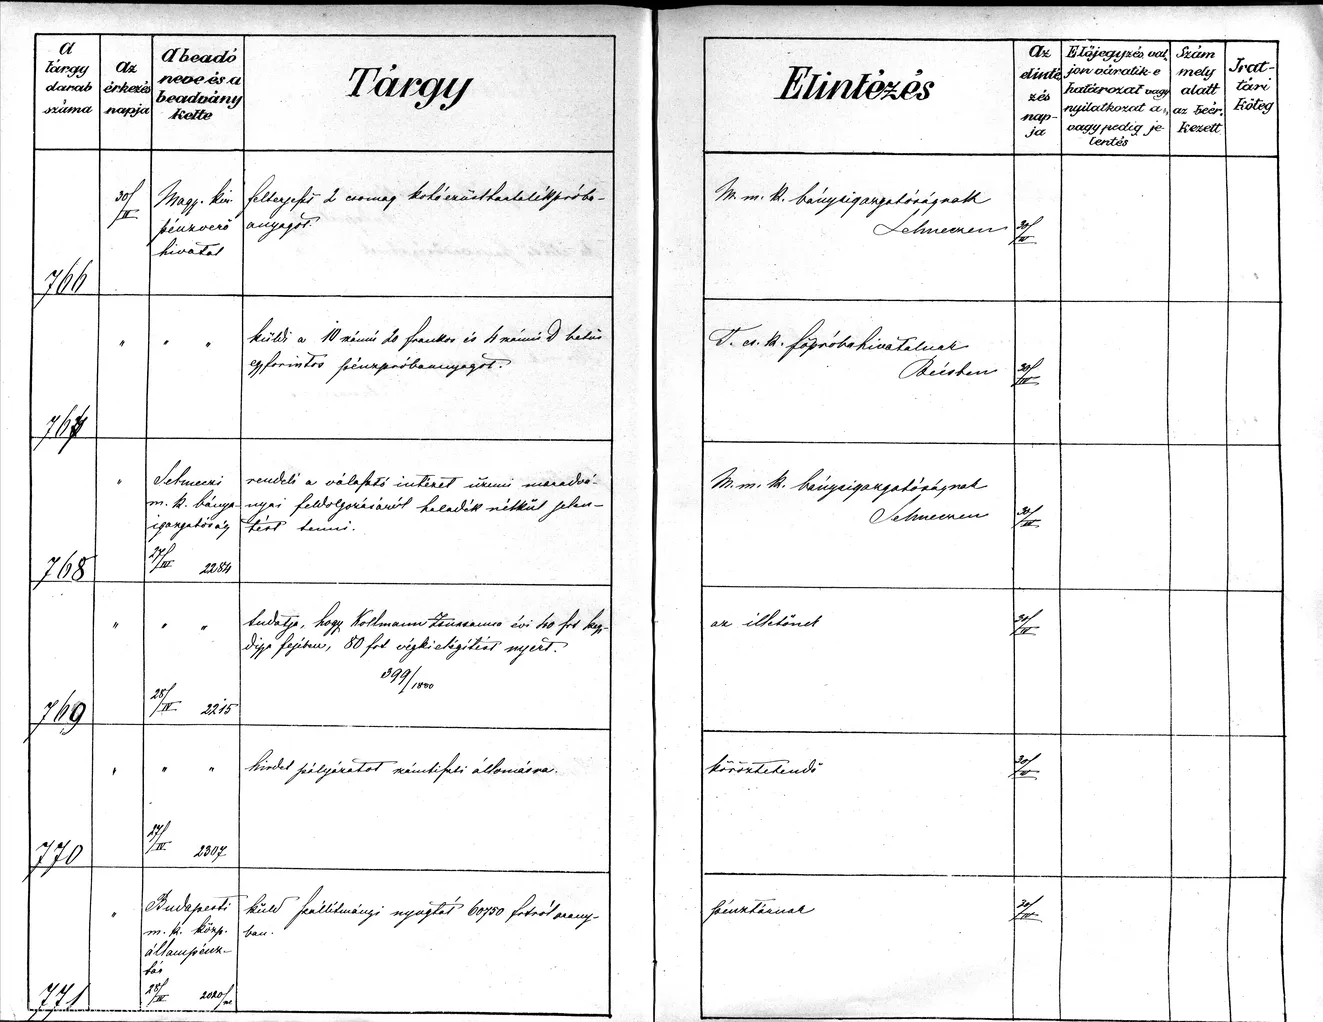 A tárgy darab száma
Az érkezés napja
A beadó neve és a beadvány kelte
Tárgy
Elintézés
Az elinté zés nap- ja
Előjegyzés, val- jon váratik-e határozat vagy nyilatkozat a., vagy pedig je- lentés
Szám mely alatt az beér- kezett
Irat- tári köteg
766
30/IV
Magy. kir.
pénzverő
hivatal
felterjeszt 2 csomag kohóezüsttartalékpróba-
anyagot.
M. m. k. bányaigazgatóságnak
Selmeczen
30/IV
767
" " "
küldi a 10 számú 20 frankos és 4 számú D betűs
egyforintos pénzpróbaanyagot.
T. cs. k. főpróbahivatalnak
Bécsben
30/IV
768
"
Selmeczi
m. k. bánya-
igazgatóság
27/IV 2284
rendeli a választó intézet üzemi maradvá-
nyai feldolgozásáról haladék nélkül jelen-
tést tenni.
M. m. k. bányaigazgatóságnak
Selmeczen
30/IV
769
" " "
28/IV 2215
tudatja, hogy Kollmann Zsuzsanna évi 40 frt kegy-
díja fejében, 80 frt végkielégítést nyert.
399/1880
az illetőnek
30/IV
770
" " "
27/IV 2307
hirdet pályázatot számtiszti állomásra.
köröztetendő
30/IV
771
"
Budapesti
m. k. közp.
állampénz-
tár
28/IV 2020
küld szállítmányi nyugtát 60750 frtról arany-
ban.
pénztárnak
30/IV